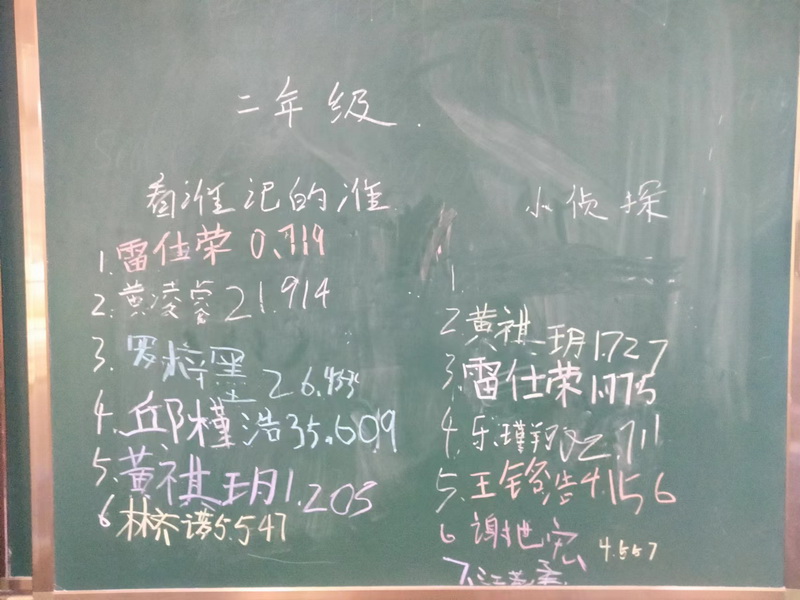 二年级
看谁记的准
1. 雷仕荣 0.719
2. 黄凌睿 21.914
3. 罗梓墨 26.453
4. 邱槿浩 35.609
5. 黄祺玥 1.203
6 林乔诺 5.547
小侦探
1.
2 黄祺玥 1.727
3. 雷仕荣 1.775
4. 乐瑾 2.711
5. 王铭浩 4.156
6 谢世宏 4.557
7.